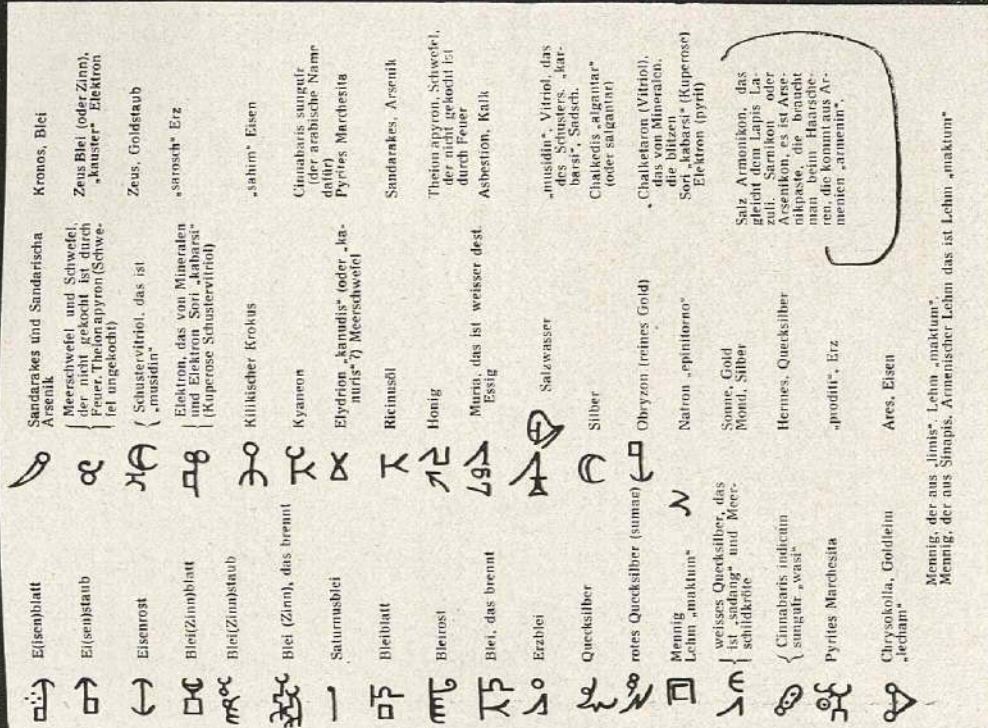 E(isen)blatt
Ei(sen)staub
Eisenrost
Blei(Zinn)blatt
Blei(Zinn)staub
Blei (Zinn), das brennt
Saturnusblei
Bleiblatt
Bleirost
Blei, das brennt
Erzblei
Quecksilber
rotes Quecksilber (sumae)
Mennig
Lehm „maktum"
weisses Quecksilber, das
ist „sadang" und Meer-
schildkröte
Cinnabaris indicum
sungufr „wasi"
Pyrites Marchesita
Chrysokolla, Goldleim
„lecham"
Sandarakes und Sandarischa
Arsenik
Meerschwefel und Schwefel,
der nicht gekocht ist durch
Feuer, Theion apyron (Schwe-
fel ungekocht)
Schustervitriol, das ist
„musidin"
Elektron, das von Mineralen
und Elektron Sori „kabarsi"
(Kuperose Schustervitriol)
Kilikischer Krokus
Kyaneon
Elydrion „kanudis" (oder „ka-
nuris"?) Meerschwefel
Ricinusöl
Honig
Muria, das ist weisser dest.
Essig
Salzwasser
Silber
Obryzon (reines Gold)
Natron „epinitorno"
Sonne, Gold
Mond, Silber
Hermes, Quecksilber
„proditi", Erz
Ares, Eisen
Kronos, Blei
Zeus Blei (oder Zinn),
„kauster" Elektron
Zeus, Goldstaub
„sarosch" Erz
„sahm" Eisen
Cinnabaris sungufr
(der arabische Name
dafür)
Pyrites Marchesita
Sandarakes, Arsenik
Theion apyron, Schwefel,
der nicht gekocht ist
durch Feuer
Asbestion, Kalk
„musidin", Vitriol, das
des Schusters, „kar-
barsi", Sadisch.
Chalkedis „algantar"
(oder salgantar)
Chalketaron (Vitriol),
das von Mineralen,
die blitzen
Sori „kabarsi" (Kuperose)
Elektron (pyrit)
Salz Armonikon, das
gleicht dem Lapis La-
zuli. Sarnikon oder
Arsenikon, es ist Arse-
nikpaste, die braucht
man beim Haarsche-
ren, die kommt aus Ar-
menien „armenin".
Mennig, der aus „limis". Lehm „maktum".
Mennig, der aus Sinapis, Armenischer Lehm das ist Lehm „maktum"